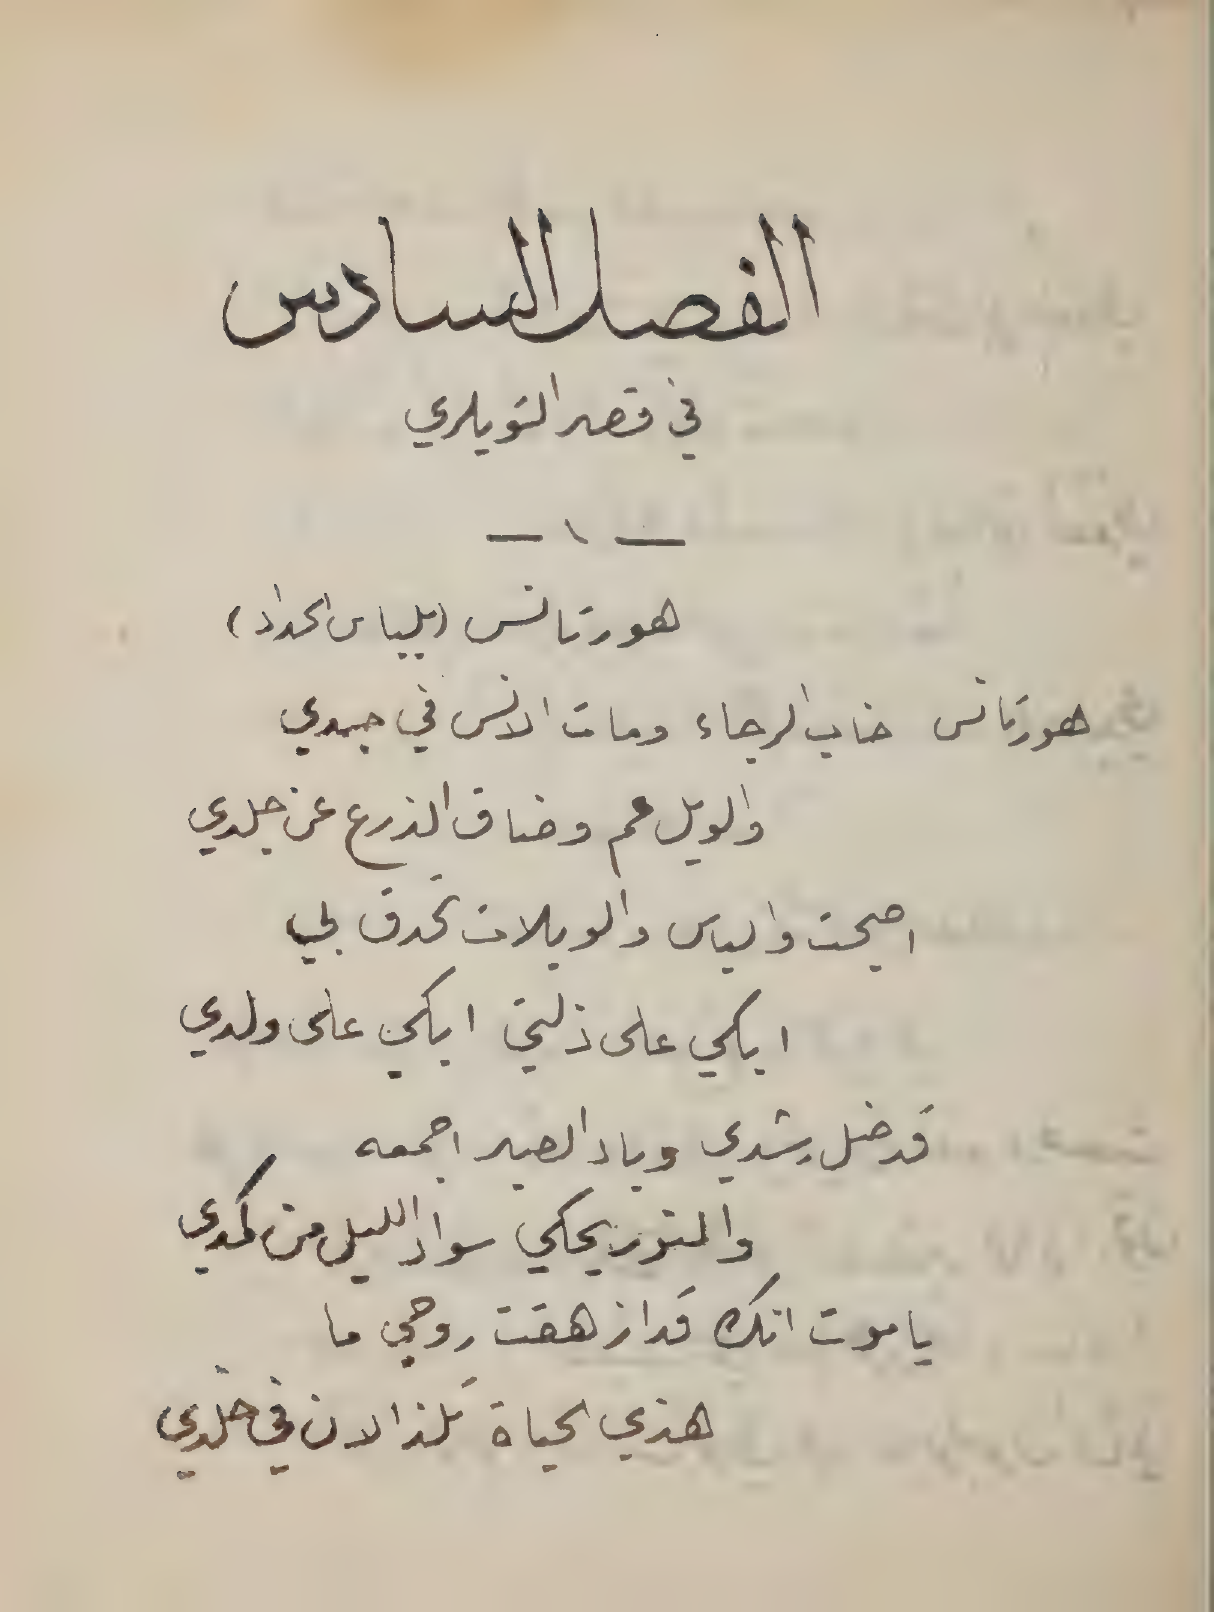 الفصل السادس
في قصر التويلري
— ١ —
هورتانس (بلباس الحداد)
هورتانس خاب الرجاء ومات الانس في جسدي
والويل عم وضاق الذرع عن جلدي
اصبحت والياس والويلات تحدق بي
ابكي على ذلتي ابكي على ولدي
قد ضل رشدي وباد الصبر اجمعه
والنور يحكي سواد الليل من كمدي
يا موت انك قد ازهقت روحي ما
هذي الحياة تلذ الان في خلدي